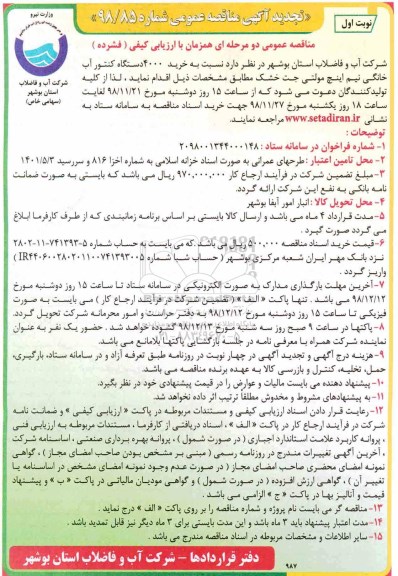 «تجدید آگهی مناقصه عمومی شماره ۹۸/۸۵»
نوبت اول
وزارت نیرو
شرکت آب و فاضلاب
استان بوشهر
(سهامی خاص)
مناقصه عمومی دو مرحله ای همزمان با ارزیابی کیفی ( فشرده )
شرکت آب و فاضلاب استان بوشهر در نظر دارد نسبت به خرید ۴۰۰۰دستگاه کنتور آب
خانگی نیم اینچ مولتی جت خشک مطابق مشخصات ذیل اقدام نماید ، لذا از کلیه
تولیدکنندگان دعوت می شود که از ساعت ۱۵ روز دوشنبه مورخ ۹۸/۱۱/۲۱ لغایت
ساعت ۱۸ روز یکشنبه مورخ ۹۸/۱۱/۲۷ جهت خرید اسناد مناقصه به سامانه ستاد به
نشانی www.setadiran.ir مراجعه نمایند.
توضیحات :
۱- شماره فراخوان در سامانه ستاد : ۲۰۹۸۰۰۱۳۴۴۰۰۰۱۴۸
۲- محل تامین اعتبار : طرحهای عمرانی به صورت اسناد خزانه اسلامی به شماره اخزا ۸۱۶ و سررسید ۱۴۰۱/۵/۳
۳-مبلغ تضمین شرکت در فرآیند ارجاع کار ۹۷۰,۰۰۰,۰۰۰ ریال می باشد که بایستی به صورت ضمانت
نامه بانکی به نفع این شرکت ارائه گردد.
۴- محل تحویل کالا : انبار امور آبفا بوشهر
۵-مدت قرارداد ۴ ماه می باشد و ارسال کالا بایستی بر اساس برنامه زمانبندی که از طرف کارفرما ابلاغ
می گردد صورت گیرد .
۶-قیمت خرید اسناد مناقصه ۵۰۰,۰۰۰ ریال می باشد .که می بایست به حساب شماره ۵-۷۴۱۳۹۳-۱۱-۲۸۰۲
نزد بانک مهر ایران شعبه مرکزی بوشهر ( حساب شبا شماره IR۴۴۰۶۰۰۲۸۰۲۰۱۱۰۰۷۴۱۳۹۳۰۰۵)
واریز گردد .
۷-آخرین مهلت بارگذاری مدارک به صورت الکترونیکی در سامانه ستاد تا ساعت ۱۵ روز دوشنبه مورخ
۹۸/۱۲/۱۲ می باشد . تنها پاکت « الف » ( تضمین شرکت در فرآیند ارجاع کار ) می بایست به صورت
فیزیکی تا ساعت ۱۵ روز دوشنبه مورخ ۹۸/۱۲/۱۲ به دفتر حراست و امور محرمانه شرکت تحویل گردد.
۸-پاکتها در ساعت ۹ صبح روز سه شنبه مورخ ۹۸/۱۲/۱۳ گشوده خواهد شد . حضور یک نفر به عنوان
نماینده شرکت همراه با معرفی نامه در جلسه بازگشایی پاکتها بلامانع می باشد.
۹- هزینه درج آگهی و تجدید آگهی در چهار نوبت در روزنامه طبق تعرفه آزاد و در سامانه ستاد، بارگیری،
حمل، تخلیه، کنترل و بازرسی کالا به عهده برنده مناقصه می باشد.
۱۰- پیشنهاد دهنده می بایست مالیات و عوارض را در قیمت پیشنهادی خود در نظر بگیرد.
۱۱- به پیشنهادهای مشروط و مخدوش مطلقا ترتیب اثر داده نخواهد شد.
۱۲- رعایت قرار دادن اسناد ارزیابی کیفی و مستندات مربوطه در پاکت « ارزیابی کیفی » و ضمانت نامه
شرکت در فرآیند ارجاع کار در پاکت « الف » ، اسناد دریافتی از کارفرما ، مستندات مربوطه به ارزیابی فنی
، پروانه کاربرد علامت استاندارد اجباری ( در صورت شمول ) ، پروانه بهره برداری صنعتی ، اساسنامه شرکت
، آخرین آگهی تغییرات مندرج در روزنامه رسمی ( مبنی بر مشخص بودن صاحب امضای مجاز ) ، گواهی
نمونه امضای محضری صاحب امضای مجاز ( در صورت عدم وجود نمونه امضای مشخص در اساسنامه یا
تغییر آن ) ، گواهی ارزش افزوده ( در صورت شمول ) و گواهی مودیان مالیاتی در پاکت « ب » و پیشنهاد
قیمت و آنالیز بها در پاکت « ج » الزامی می باشد .
۱۳- مناقصه گر می بایست نام پروژه و شماره مناقصه را بر روی پاکت « الف » درج نماید .
۱۴- مدت اعتبار پیشنهاد باید ۳ ماه باشد و این مدت بایستی برای ۳ ماه دیگر نیز قابل تمدید باشد .
۱۵- سایر اطلاعات و مشخصات مربوطه در اسناد مناقصه مندرج می باشد .
۹۸۷
دفتر قراردادها – شرکت آب و فاضلاب استان بوشهر